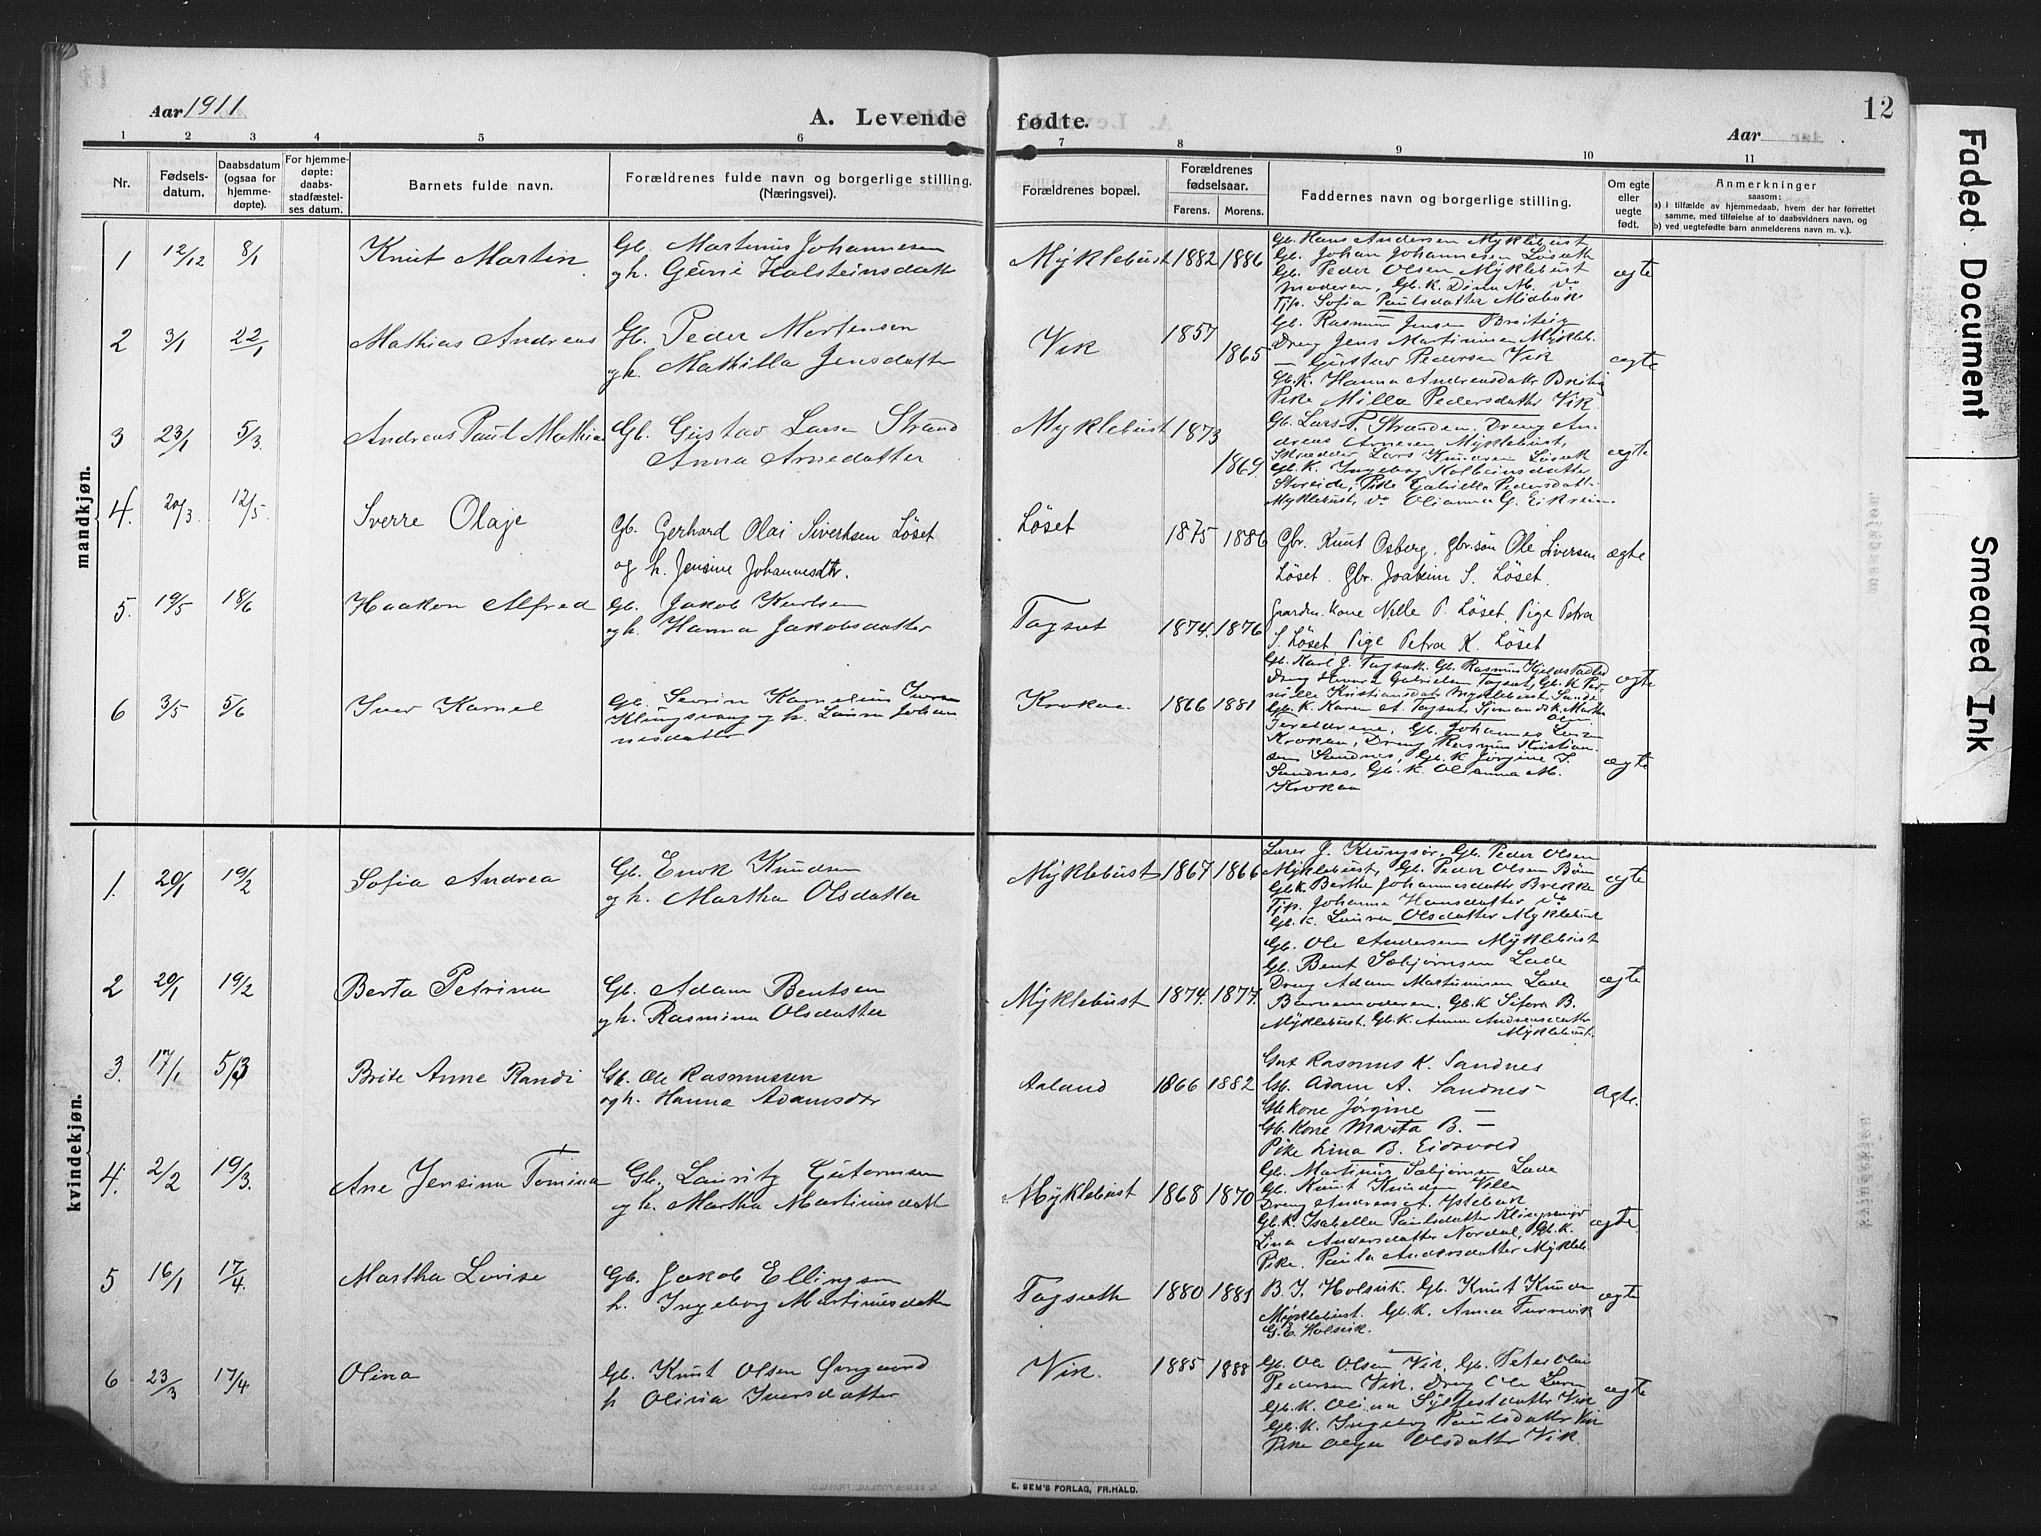 Aar 1911
A. Levende fødte.
Aar
12
1 2 3 4 5 6 7 8 9 10 11
Nr.
Fødselsdatum.
Daabsdatum (ogsaa for hjemmedøpte).
For hjemmedøpte: daabsstadfæstelses datum.
Barnets fulde navn.
Forældrenes fulde navn og borgerlige stilling. (Næringsvei).
Forældrenes bopæl.
Forældrenes fødselsaar.
Farens. Morens.
Faddernes navn og borgerlige stilling.
Om egte eller uegte født.
Anmerkninger
saasom:
a) i tilfælde av hjemmedaab, hvem der har forrettet
samme, med tilføielse af to daabsvidners navn, og
b) ved uegtefødte barn anmelderens navn m. v.).
mandkjøn.
1 12/12 8/1 Knut Martin
Gb. Martinus Johannesen
og h. Holsteinsdatt
Myklebust 1882 1886
Gb. Hans Andersen Myklebust
Gb. Johan Johannesen Løseth
Gb. Peder Olsen Myklebust
Moderen, Gb. K. Dina M. do
Tjp. Sofia Paulsdatter Midbøe
ægte
2 3/1 22/1 Mathias Andreas
Gb. Peder Mortensen
og h. Mathilla Jensdatter
Vik 1857 1865
Gb. Rasmus Jensen Breiteig
Dreng Jens Martinusen Mykleb.
— Gustav Pedersen Vik
Gb.K. Hanna Andreasdatr Breiteig
Pike Milla Pedersdatter Vik.
ægte
3 23/1 5/3. Andreas Paul Mathias
Gb. Gustav Larsen Strand
Anna Arnedatter
Myklebust 1873 1869.
Gb. Lars P. Stranden, Dreng An-
dreas Arnesen Myklebust,
Skrædder Lars Knudsen Løseth
Gb. K. Ingeborg Kolbeinsdatter
Pike Gabriella Pedersdatt.
Myklebust, do Olianna G. Eikrem
ægte
4. 20/3 12/5. Sverre Olaje
Gb. Gerhard Olai Sivertsen Løset
og h. Jensine Johannesdtr.
Løset 1875 1886
Gbr. Knut Osberg, gbr.søn Ole Siversen
Løset. Gbr. Joakim S. Løset.
Gaardm. kone Nille P. Løset, Pige Petra
S. Løset, Pige Petra K. Løset
ægte
5. 19/5 18/6 Haakon Alfred
Gb. Jakob Karlsen
og h. Hanna Jakobsdatter
Tagset 1874. 1876
Gb. Karl J. Tagset, Gb. Rasmus
Dreng Gabrielsen Tagset, Gb. K. Per-
nille Kristiansdatr Myklebust,
Gb. K. Karen A. Tagset, Sjømandsk. Martha
ægte
6 3/5 5/6 Iver Kornel
Gb. Severin Kornelius Iversen
Klungsvang og h. Laura Johan
nesdatter
Krokaa. 1866 1881
Forældrene, Gb. Johannes
Krokaa, Dreng Rasmus Kristian-
sen Sandnes, Gb. K. Jørgine I.
Sandnes, Gb. K. Olianna M.
Krokaa
ægte
kvindekjøn.
1. 20/1 19/2 Sofia Andrea
Gb. Enok Knudsen
og h. Martha Olsdatter
Myklebust 1867 1866
Lærer J. Klungsør, Gb. Peder Olsen
Myklebust, Gb. Peder Olsen Bøen
Gb.K. Bertha Johannesdatter Brekke
Tjp. Johanna Hansdatter do
Gb. K. Laura Olsdatter Myklebust
ægte
2 20/1 19/2 Berta Petrina
Gb. Adam Bentsen
og h. Rasmina Olsdatter
Myklebust 1874. 1877.
Gb. Ole Andersen Myklebust
Gb. Bent Sæbjørnsen Lade
Dreng Adam Martinusen Lade
Barnemoderen, Gb. K. Sifora B.
Myklebust, Gb. K. Anna Andreasdatter
Myklebust.
ægte
3. 17/1 5/3 Brite Anne Randi
Gb. Ole Rasmussen
og h. Hanna Adamsdtr
Aaland 1866 1882
Gut Rasmus K. Sandnes
Gb. Adam A. Sandnes
Gb. Kone Jørgine —
Gb. Kone Marta B. —
Pike Lina B. Eidsvold
ægte.
4. 2/2 19/3. Ane Jensina Tomina
Gb. Lauritz Gutormsen
og h. Martha Martinusdatter
Myklebust 1868 1870
Gb. Martinus Sæbjørnsen Lade
Gb. Knut Knudsen Villa
Dreng Andreas A. Ystebøe
Gb. K. Isabella Paulsdatter
Lina Andersdatter Nordal, Gb. K.
Pike. Paula Andersdatter Mykleb.
ægte.
5 16/1 17/4. Martha Lovise
Gb. Jakob Ellingsen
h. Ingeborg Martinusdatter
Tagseth 1880 1881
B. I. Holsvik. Gb. Knut Knuds
Myklebust. Gb. K. Anna Furuvik
G. E. Holsvik.
ægte
6 23/3 17/4 Olina
Gb. Knut Olsen
h Olina Iversdatter
Vik. 1885 1888
Gb. Ole Olsen Vik, Gb. Peter Olai
Pedersen Vik, Dreng Ole Larsen
Gb. K. Olina Sylfestdatter Vik
Gb. K. Ingeborg Paulsdatter Vik
Pike Olsdatter Vik.
ægte
E. SEM'S FORLAG, FR.HALD.
Faded Document
Smeared Ink